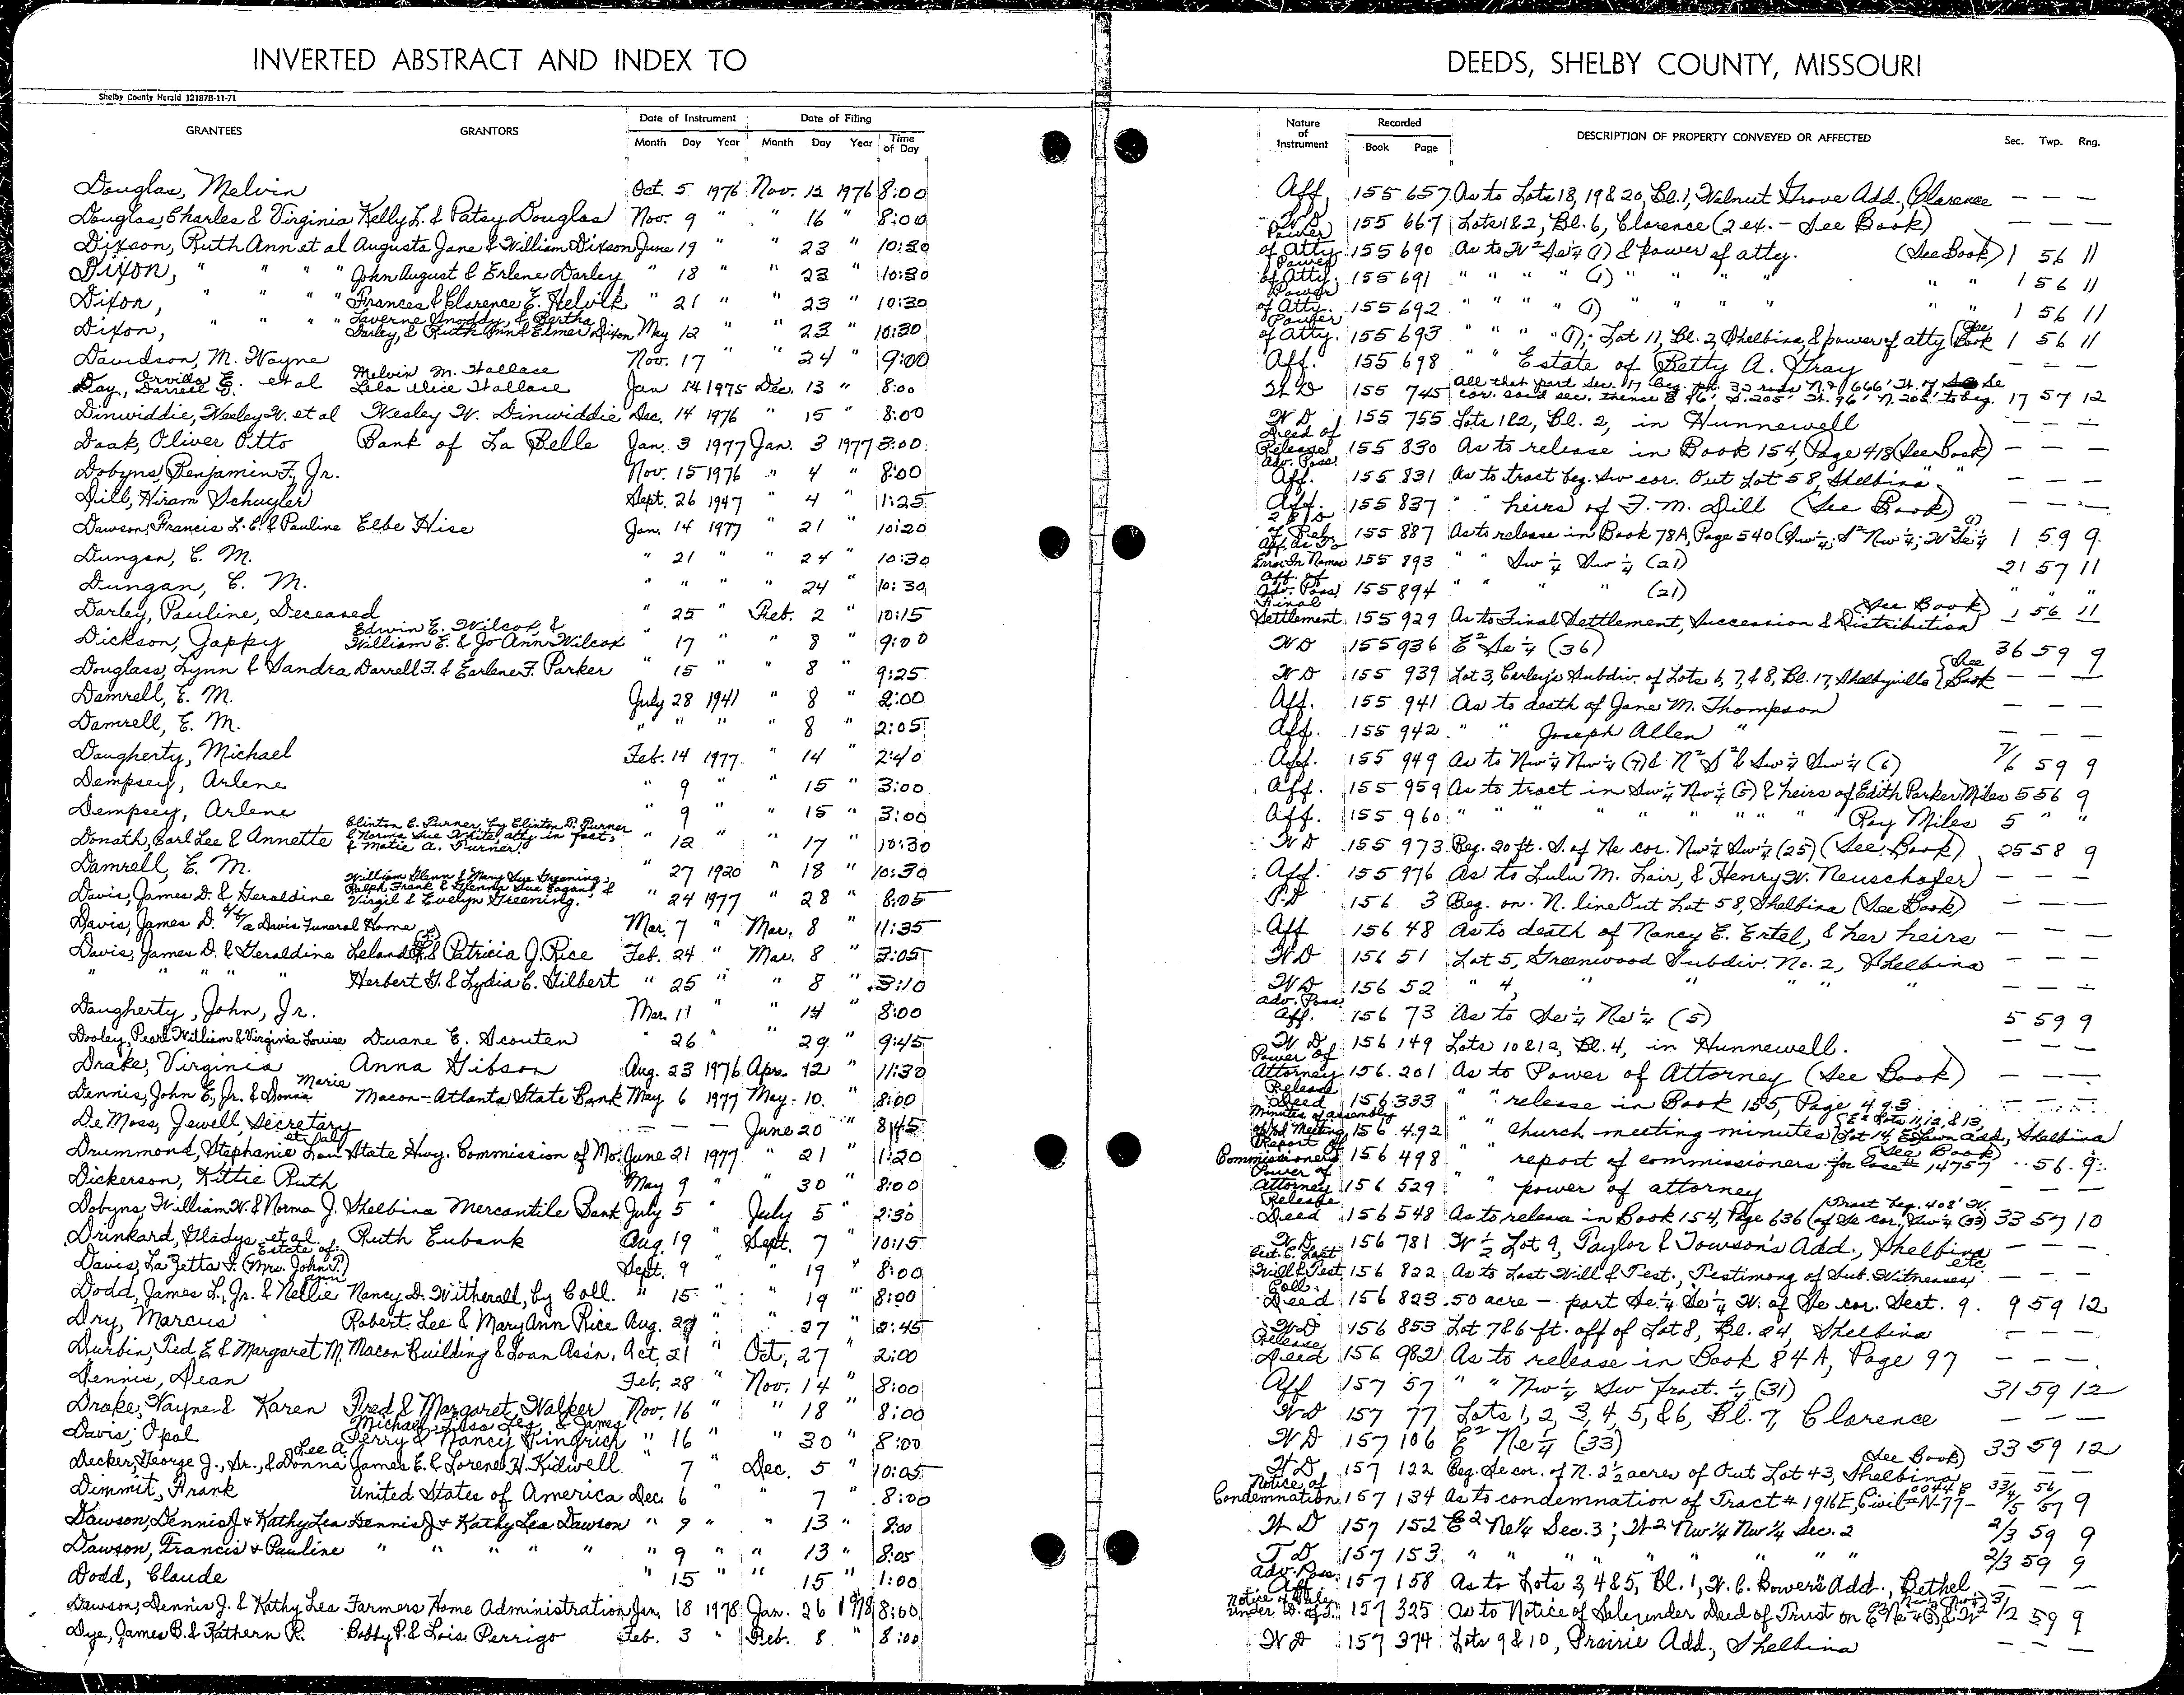 INVERTED ABSTRACT AND INDEX TO
DEEDS, SHELBY COUNTY, MISSOURI
Shelby County Herald 12187B-11-71
GRANTEES GRANTORS Date of Instrument Month Day Year Date of Filing Month Day Year Time of Day Nature of Instrument Recorded Book Page DESCRIPTION OF PROPERTY CONVEYED OR AFFECTED Sec. Twp. Rng.
Douglas, Melvin Oct. 5 1976 Nov. 12 1976 8:00 Aff. 155 657 As to Lots 18, 19 & 20, Bl. 1, Walnut Grove Add., Clarence — — —
Douglas, Charles & Virginia Kelly L. & Patsy Douglas Nov. 9 " " 16 " 8:00 WD 155 667 Lots 1&2, Bl. 6, Clarence (2 ex. - See Book) — — —
Dixson, Ruth Ann et al Augusta Jane & William Dixson June 19 " " 23 " 10:30 Power of Atty. 155 690 As to W² Se¼ (1) & power of atty. (See Book) 1 56 11
Dixon, " " " " John August & Erlene Darley " 18 " " 23 " 10:30 Power of Atty. 155 691 " " " " (1) " " " " " 1 56 11
Dixon, " " " " Frances & Clarence E. Helvik " 21 " " 23 " 10:30 Power of Atty. 155 692 " " " " (1) " " " " " 1 56 11
Dixon, " " " " Laverne Snoddy, & Bertha Darley, & Ruth Ann & Elmer Dixon May 12 " " 23 " 10:30 Power of Atty. 155 693 " " " " (1); Lot 11, Bl. 2, Shelbina, & power of atty (See Book 1 56 11
Davidson, M. Wayne Nov. 17 " " 24 " 9:00 Aff. 155 698 " " Estate of Betty A. Gray — — —
Day, Orville E. et al Darrell G. Melvin M. Wallace Lela Alice Wallace Jan 14 1975 Dec. 13 " 8:00 WD 155 745 all that part Sec. 17 beg. pt. 32 rods N. & 666' W. of Se cor. said sec. thence E 96' S. 205' W. 96' N. 205' to beg. 17 57 12
Dinwiddie, Wesley W. et al Wesley W. Dinwiddie Dec. 14 1976 " 15 " 8:00 WD 155 755 Lots 1&2, Bl. 2, in Hunnewell — — —
Doak, Oliver Otto Bank of La Belle Jan. 3 1977 Jan. 3 1977 3:00 Deed of Release 155 830 As to release in Book 154, Page 418 (See Book) — — —
Dobyns, Benjamin F., Jr. Nov. 15 1976 " 4 " 8:00 Adv. Poss. Aff. 155 831 As to tract beg. Sw cor. Out Lot 58, Shelbina — — —
Dill, Hiram Schuyler Sept. 26 1947 " 4 " 1:25 Aff. 155 837 " " heirs of F. M. Dill (See Book) — — —
Dawson, Francis L. C. & Pauline Elbe Hise Jan. 14 1977 " 21 " 10:20 of Rele. 155 887 As to release in Book 78A, Page 540 (Sw¼; S² Nw¼; W² Se¼ (1) 1 59 9
Dungan, C. M. " 21 " " 24 " 10:30 Aff. As To Error In Names 155 893 " " Sw¼ Sw¼ (21) 21 57 11
Dungan, C. M. " " " " 24 " 10:30 Aff. of Adv. Poss 155 894 " " " " (21) " " "
Darley, Pauline, Deceased " 25 " Feb. 2 " 10:15 Final Settlement 155 929 As to Final Settlement, Succession & Distribution (See Book) 1 56 11
Dickson, Jappy Edwin E. Wilcox, & William E. & Jo Ann Wilcox " 17 " " 8 " 9:00 WD 155 936 E² Se¼ (36) 36 59 9
Douglass, Lynn & Sandra Darrell F. & Earlene F. Parker " 15 " " 8 " 9:25 WD 155 939 Lot 3, Carley's Subdiv. of Lots 6, 7, & 8, Bl. 17, Shelbyville (See Book — — —
Damrell, E. M. July 28 1941 " 8 " 2:00 Aff. 155 941 As to death of Jane M. Thompson — — —
Damrell, E. M. " " " " 8 " 2:05 Aff. 155 942 " " " Joseph Allen " — — —
Daugherty, Michael Feb. 14 1977 " 14 " 2:40 Aff. 155 949 As to Nw¼ Nw¼ (7) & N² S² & Sw¼ Sw¼ (6) 7/6 59 9
Dempsey, Arlene " 9 " " 15 " 3:00 Aff. 155 959 As to tract in Sw¼ Nw¼ (5) & heirs of Edith Parker Miles 5 56 9
Dempsey, Arlene " 9 " " 15 " 3:00 Aff. 155 960 " " " " " " " " Roy Miles 5 " "
Donath, Carl Lee & Annette Clinton C. Turner, by Clinton D. Turner & Norma Sue White, atty. in fact, & Matie A. Turner " 12 " 17 " 10:30 WD 155 973 Beg. 20 ft. S. of Ne cor. Nw¼ Sw¼ (25) (See Book) 25 58 9
Damrell, E. M. " 27 1920 " 18 " 10:30 Aff. 155 976 As to Lulu M. Lair, & Henry W. Neuschafer — — —
Davis, James D. & Geraldine William Glenn & Mary Sue Greening, Ralph Frank & Glenna Sue Eagan, & Virgil & Evelyn Greening. " 24 1977 " 28 " 8:05 156 3 Beg. on N. line Out Lot 58, Shelbina (See Book) — — —
Davis, James D. d/b/a Davis Funeral Home Mar. 7 " Mar. 8 " 11:35 Aff 156 48 As to death of Nancy E. Ertel, & her heirs — — —
Davis, James D. & Geraldine Leland R. & Patricia J. Rice Feb. 24 " Mar. 8 " 3:05 WD 156 51 Lot 5, Greenwood Subdiv. No. 2, Shelbina — — —
" " " " " Herbert G. & Lydia E. Gilbert " 25 " " 8 " 3:10 WD 156 52 " 4, " " " " " — — —
Daugherty, John, Jr. Mar. 11 " " 14 " 8:00 Adv. Poss. Aff. 156 73 As to Se¼ Ne¼ (5) 5 59 9
Dooley, Pearl William & Virginia Louise Duane E. Scouten " 26 " " 29 " 9:45 WD 156 149 Lots 10 & 12, Bl. 4, in Hunnewell. — — —
Drake, Virginia Anna Gibson Aug. 23 1976 Apr. 12 " 11:30 Power of Attorney 156 201 As to Power of Attorney (See Book) — — —
Dennis, John E., Jr. & Donna Marie Macon-Atlanta State Bank May 6 1977 May 10 " 8:00 Release Deed 156 333 " " release in Book 155, Page 493 — — —
De Moss, Jewell, Secretary — — — June 20 " 8:45 Minutes of assembly Meeting 156 492 " " church meeting minutes (E² Lots 11, 12, & 13, Lot 14 Add., Shelbina
Drummond, Stephanie Lou et al State Hwy. Commission of Mo. June 21 1977 " 21 " 1:20 Report of Commissioners 156 498 " " report of commissioners for Case # 14757 (See Book) 56 9
Dickerson, Kittie Ruth May 9 " " 30 " 8:00 Power of Attorney 156 529 " " power of attorney — — —
Dobyns, William W. & Norma J. Shelbina Mercantile Bank July 5 " July 5 " 2:30 Release Deed 156 548 As to release in Book 154, Page 636 (Tract beg. 408' W. of Se cor. Sw¼ (33) 33 57 10
Drinkard, Gladys et al. Ruth Eubank Aug. 19 " Sept. 7 " 10:15 WD 156 781 W ½ Lot 9, Taylor & Towson's Add., Shelbina — — —
Davis, LaZetta F. (Mrs. John T.) Estate of Sept. 9 " " 19 " 8:00 Will & Test. 156 822 As to Last Will & Test., Testimony of Sub. Witnesses etc. — — —
Dodd, James L., Jr. & Nellie Ann Nancy D. Witherall, by Coll. " 15 " " 19 " 8:00 Coll. Deed 156 823 .50 acre - part Se¼ Se¼ W. of Se cor. Sect. 9. 9 59 12
Dry, Marcus Robert Lee & Mary Ann Rice Aug. " " 27 " 2:45 WD 156 853 Lot 7 & 6 ft. off of Lot 8, Bl. 24, Shelbina — — —
Durbin, Ted E & Margaret M. Macon Building & Loan Ass'n. Oct. 21 " Oct. 27 " 2:00 Release Deed 156 982 As to release in Book 84A, Page 97 — — —
Dennis, Dean Feb. 28 " Nov. 14 " 8:00 Aff 157 57 " " Nw¼ Sw Fract. ¼ (31) 31 59 12
Drake, Wayne & Karen Fred & Margaret Walker Nov. 16 " " 18 " 8:00 WD 157 77 Lots 1, 2, 3, 4, 5, & 6, Bl. 7, Clarence — — —
Davis, Opal Michael, Lisa & James Perry & Nancy Gingrich " 16 " " 30 " 8:00 WD 157 106 E² Ne¼ (33) 33 59 12
Decker, George J., Sr., & Donna Lee A. James E. & Lorene H. Kidwell " 7 " Dec. 5 " 10:05 WD 157 122 Beg. Se cor. of N. 2½ acres of Out Lot 43, Shelbina (See Book) — — —
Dimmit, Frank United States of America Dec. 6 " " 7 " 8:00 Notice of Condemnation 157 134 As to condemnation of Tract # 1916E, Civil # N-77-0044C 33/4/5 56/57 9
Dawson, Dennis J + Kathy Lea Dennis J + Kathy Lea Dawson " 9 " " 13 " 8:00 WD 157 152 E² Ne¼ Sec. 3; W² Nw¼ Nw¼ Sec. 2 2/3 59 9
Dawson, Francis + Pauline " " " " " " 9 " " 13 " 8:05 TD 157 153 " " " " " " " " 2/3 59 9
Dodd, Claude " 15 " " 15 " 1:00 Adv. Poss. Aff. 157 158 As to Lots 3, 4 & 5, Bl. 1, W. C. Bower's Add., Bethel — — —
Dawson, Dennis J. & Kathy Lea Farmers Home Administration Jan. 18 1978 Jan. 26 1978 8:00 Notice of Sale Under D. of T. 157 325 As to Notice of Sale under Deed of Trust on E² Ne¼ (3), & W² Nw¼ Nw¼ 3/2 59 9
Dye, James B. & Kathern R. Bobby P. & Lois Perrigo Feb. 3 " Feb. 8 " 8:00 WD 157 374 Lots 9 & 10, Prairie Add., Shelbina — — —